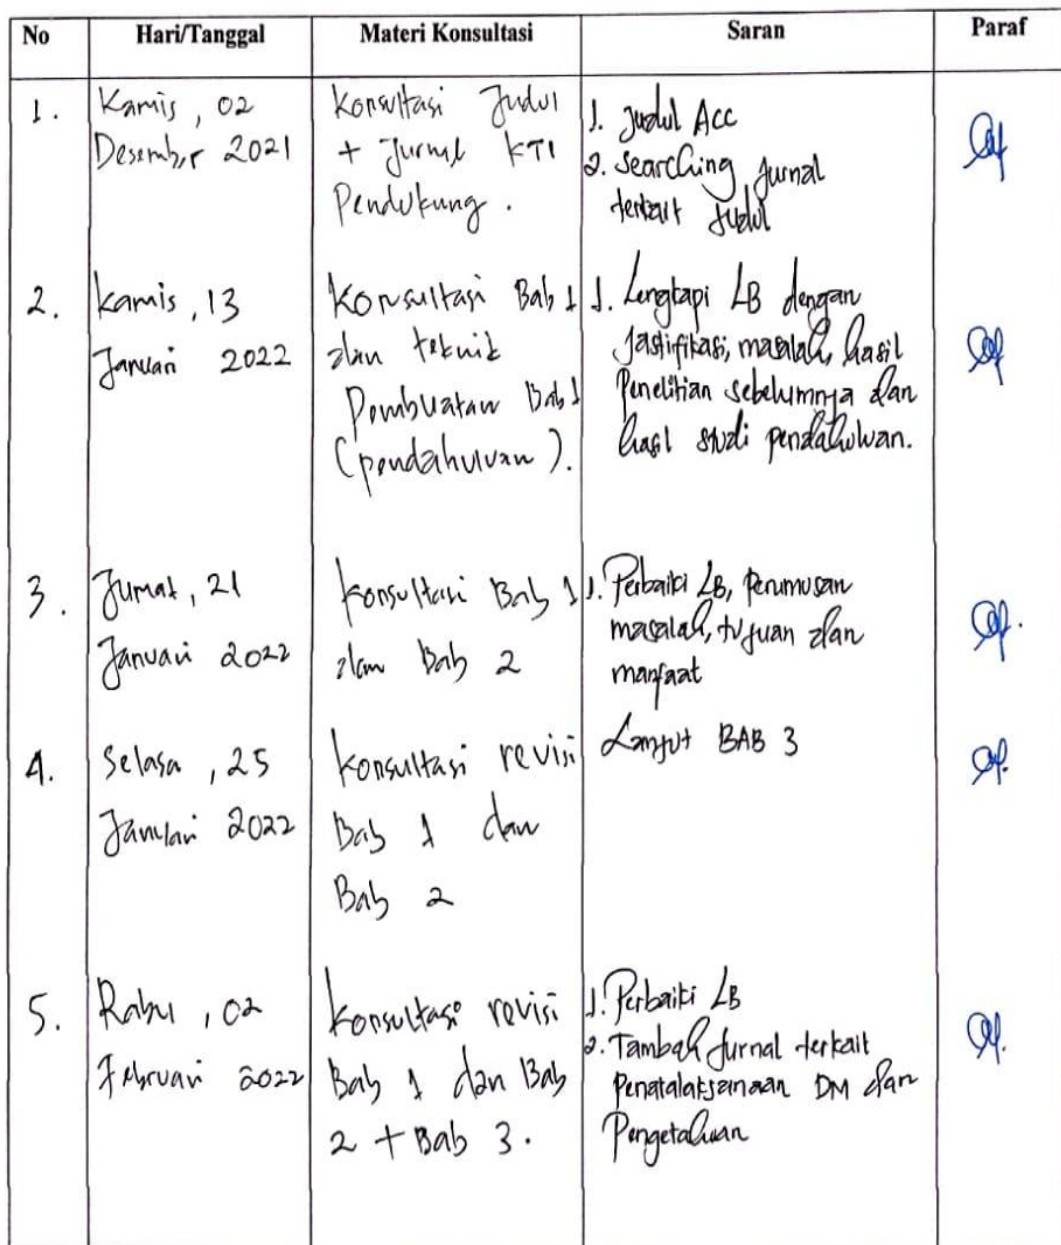 No Hari/Tanggal Materi Konsultasi Saran Paraf
1. Kamis, 02
Desember 2021
Konsultasi Judul
+ Jurnal KTI
Pendukung.
1. Judul Acc
2. Searching Jurnal
terkait Judul
2. Kamis, 13
Januari 2022
Konsultasi Bab 1
dan teknik
Pembuatan Bab 1
(pendahuluan).
1. Lengkapi LB dengan
Jastifikasi, masalah, hasil
Penelitian sebelumnya dan
hasil studi pendahuluan.
3. Jumat, 21
Januari 2022
Konsultasi Bab 1
dan Bab 2
1. Perbaiki LB, Perumusan
masalah, tujuan dan
manfaat
4. Selasa, 25
Januari 2022
Konsultasi revisi
Bab 1 dan
Bab 2
Lanjut BAB 3
5. Rabu, 02
Februari 2022
Konsultasi revisi
Bab 1 dan Bab
2 + Bab 3.
1. Perbaiki LB
2. Tambah Jurnal terkait
Penatalaksanaan DM dan
Pengetahuan